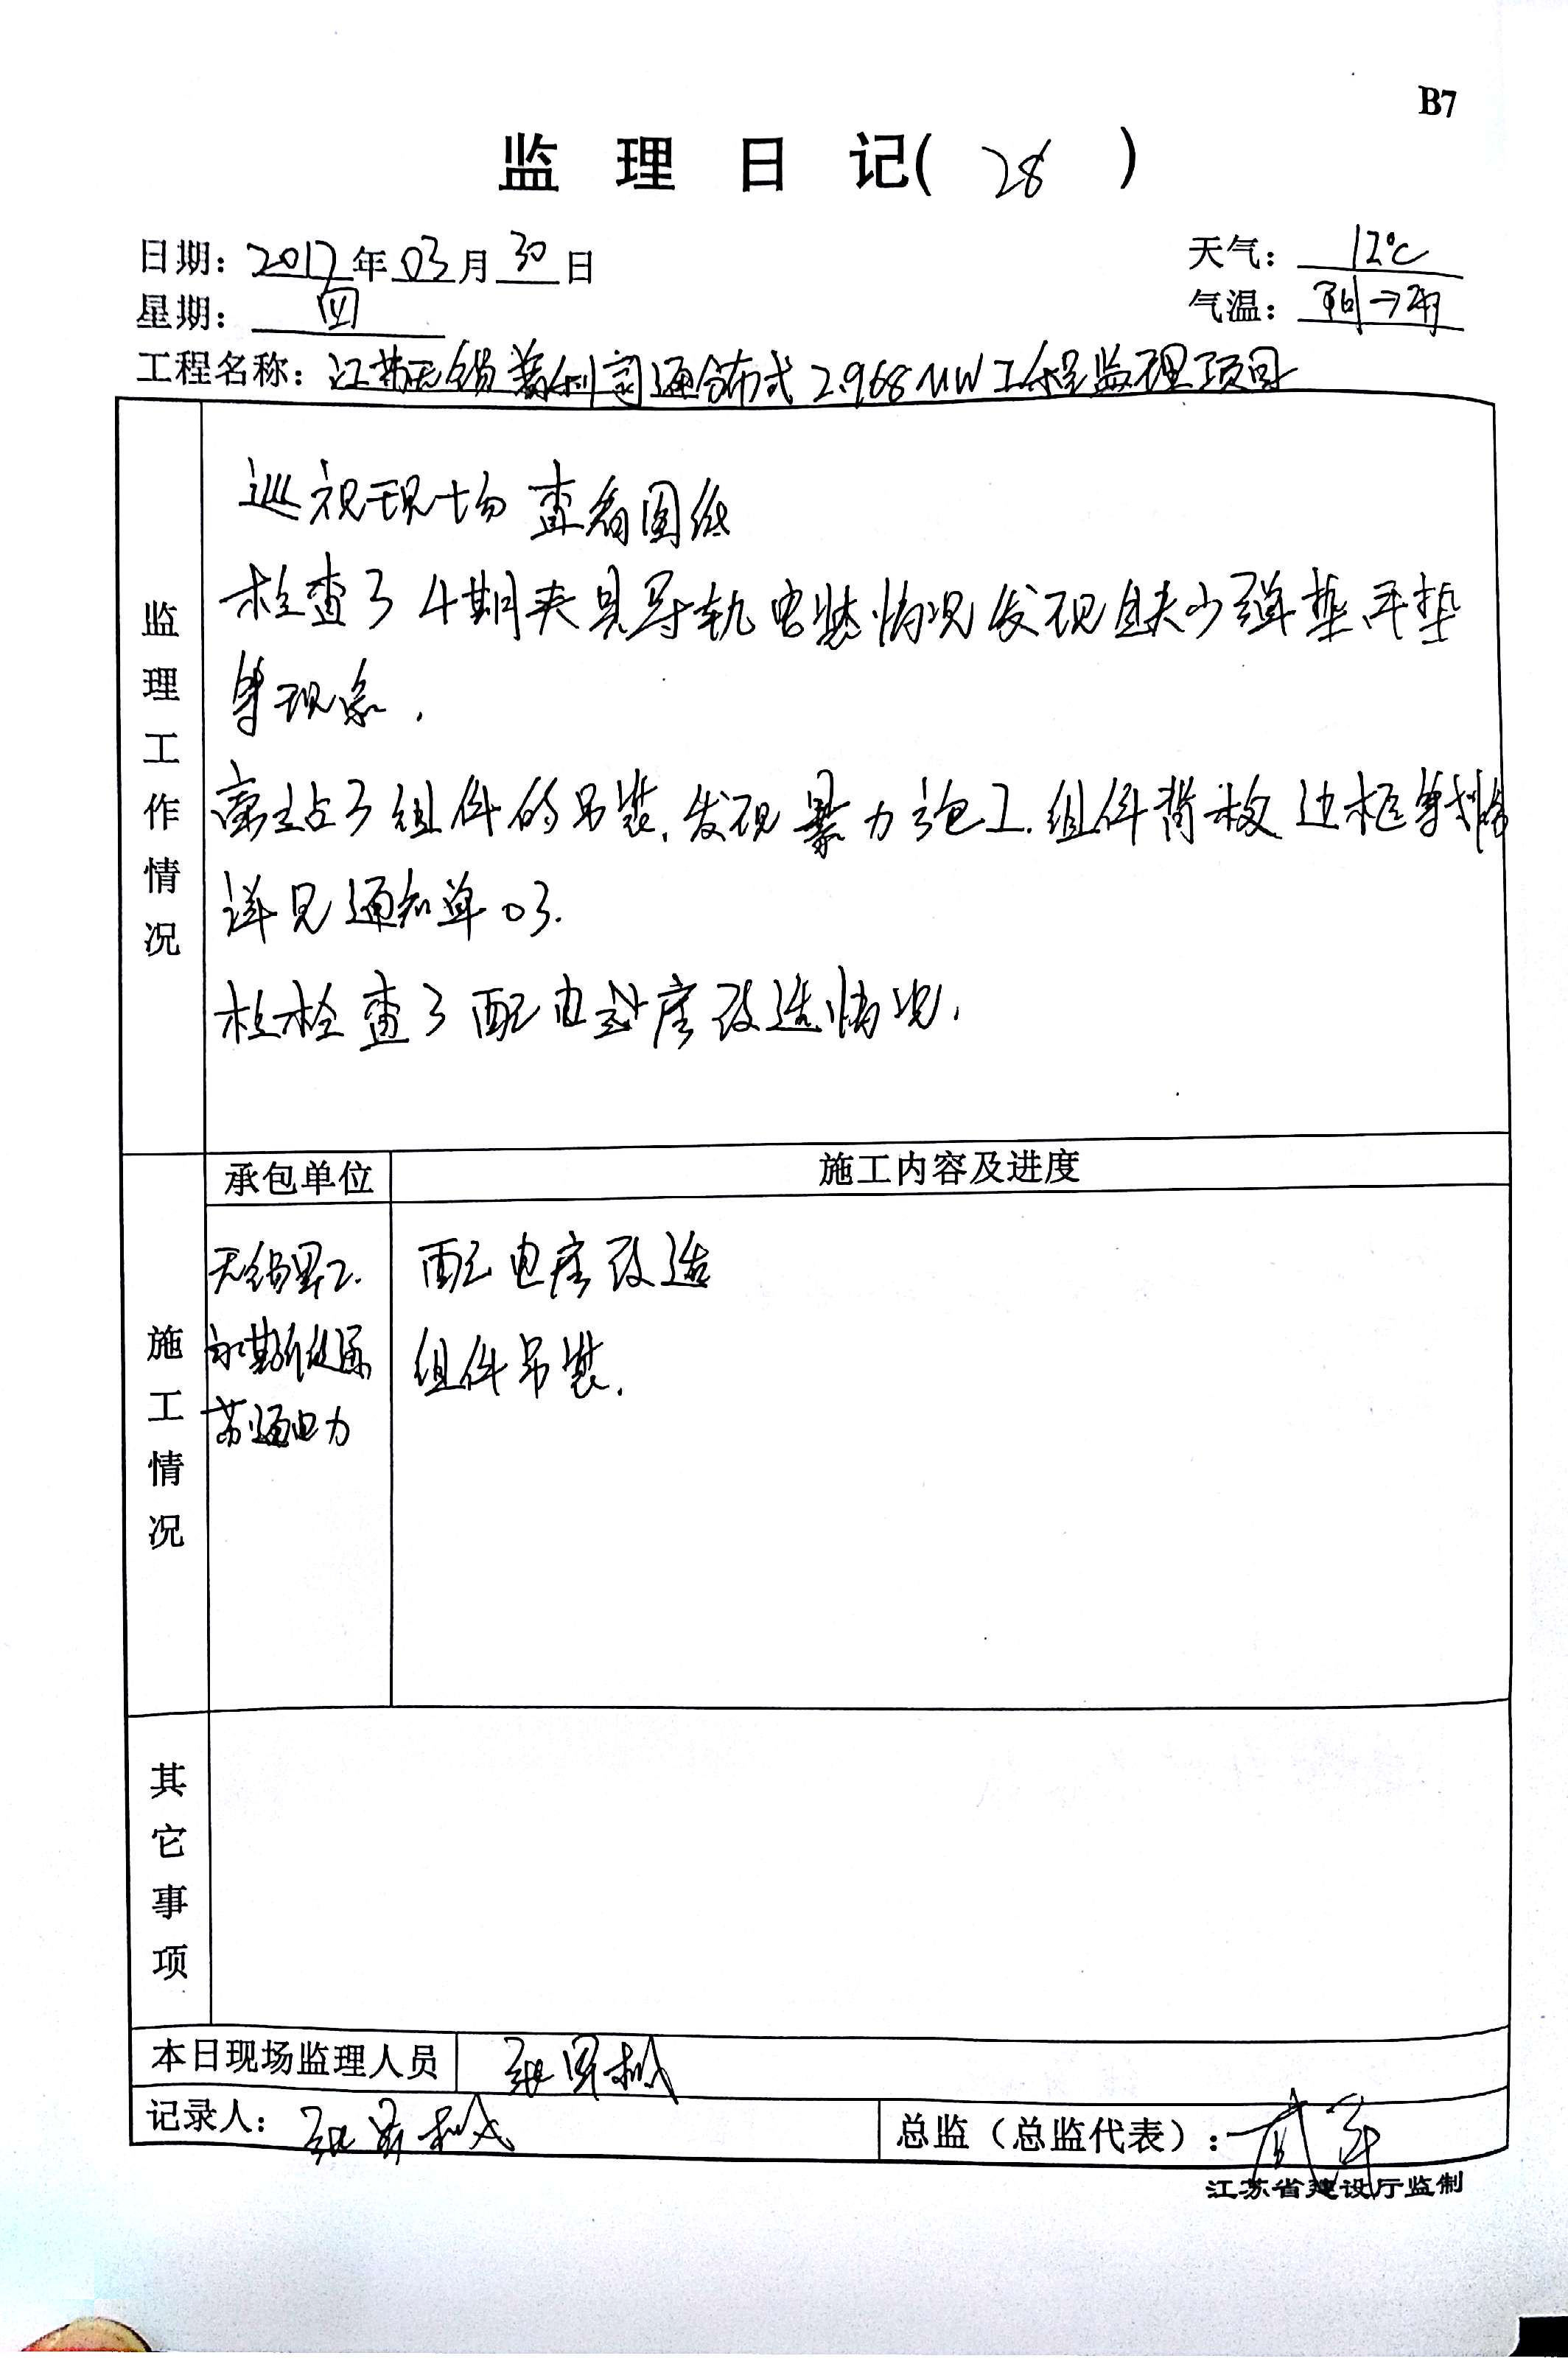 B7
监 理 日 记( 28 )
日期: 2017 年 03 月 30 日
天气: 12℃
星期: 四
气温: 阴→雨
工程名称: 江苏无锡 通分布式 2.968MW工程监理项目
监理工作情况
巡视现场 查看图纸
检查了4期夹具导轨安装情况发现缺少弹垫平垫
等现象.
旁站了组件的吊装,发现暴力施工.组件背板 边框等划伤
详见通知单03.
检查了配电房改造情况.
承包单位
施工内容及进度
施工情况
无锡
配电房改造
组件吊装.
苏通电力
其它事项
本日现场监理人员
记录人:
总监(总监代表):
江苏省建设厅监制